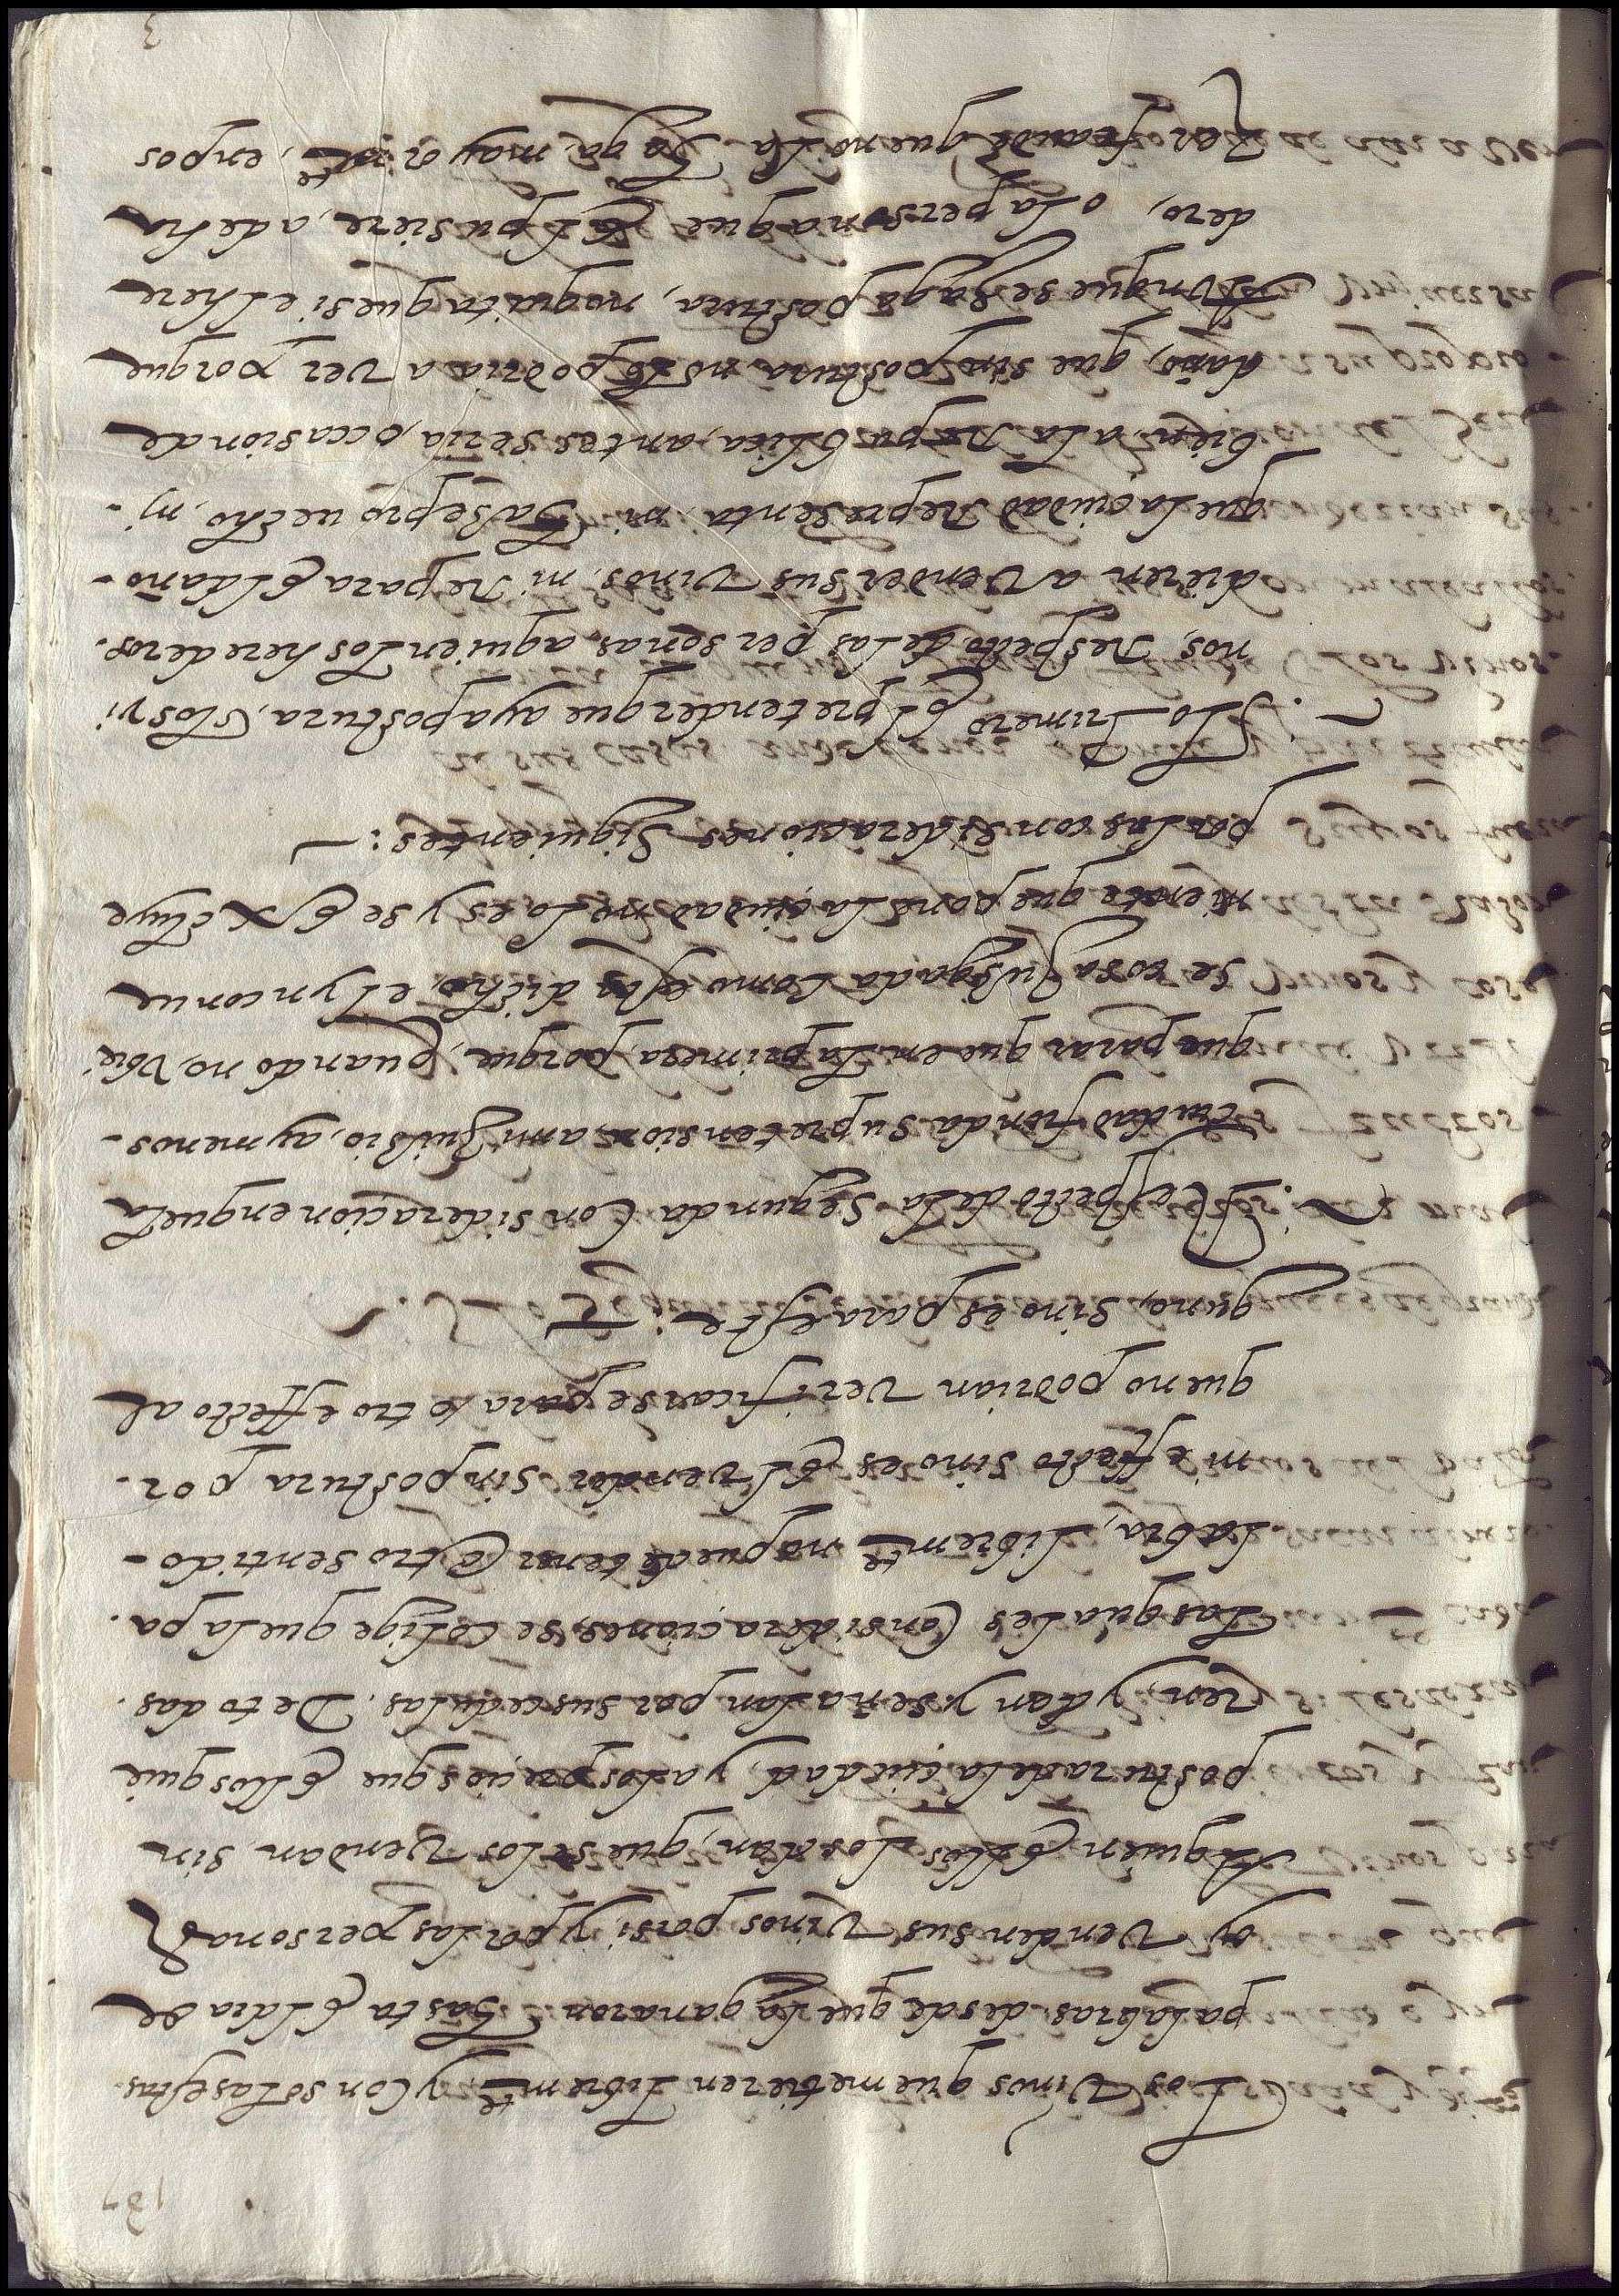 137
Los Vinos que metieren librem.te y Con solas estas
palabras desde que la ganaron hasta el dia de
oy venden sus Vinos por si, y por las personas
A quien ellos los dan, que se los vendan sin
postura de la ciudad, y a los precios que ellos quie
ren, y dan y señalan por sus cedulas. De todas
Las quales Consideraciones, se Colige que la pa
labra, librem.te no puede tener otro sentido
ni effecto sino es el vender sin postura por
que no podrian verificarse para otro effecto al
guno, sino es para este:
Respecto de la segunda Consideracion en que la
Ciudad funda su pretension, a mi Juisio, ay menos
que parar que en la primera, porque, quando no, vbie
se cosa Jusgada Como esta dicho, el ynconue
niente que pone la ciudad no lo es y se excluye
por las consideraciones Siguientes:
Lo Primero el pretender que aya postura, elos vi
nos, Respecto de las personas a quien los herederos
dieren a Vender sus Vinos, ni Repara el daño
que la ciudad Representa, ni haze prouecho, ni
bien, a la Republica, antes seria, occasion de
daño, que sin postura no le podria a ver porque
Aunque se haga postura, no quita que si el here
dero, o la persona que el pusiere, a de ha
zer fraude que no la haga, mayorm.te, en pos
3